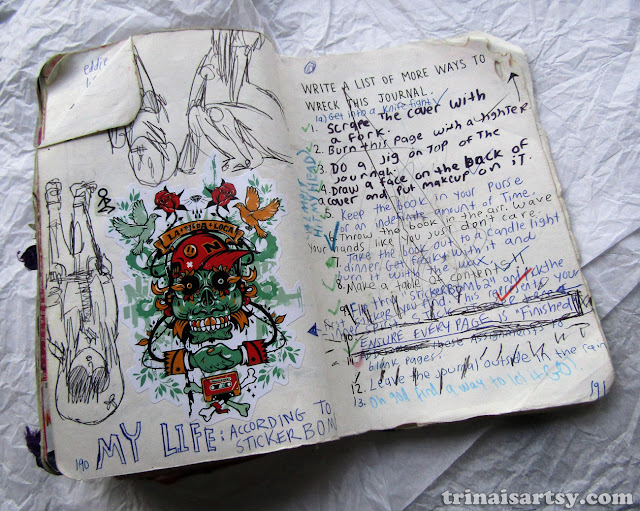 eddie
LA VIDA LOCA
N
MY LIFE: ACCORDING TO
STICKERBOM
190
WRITE A LIST OF MORE WAYS TO
WRECK THIS JOURNAL.
1a) Get into a knife fight
1. Scrape the cover with
a fork.
2. Burn this page with a lighter
3. Do a jig on top of the
journal.
4. Draw a face on the back of
a cover and put makeup on it.
5. Keep the book in your purse
for an indefinite amount of time.
Throw the book in the air. Wave
your hands like you just don't care.
7. Take the book out to a candle light
dinner. Get freaky with it and
the wax.
8. Make a table of contents!!
9. Find the STICKERBOMB 2 and
ENSURE EVERY PAGE IS "Finished"
blank pages.
12. Leave the journal outside in the rain
13. Oh god find a way to let it GO!
191
trinaisartsy.com